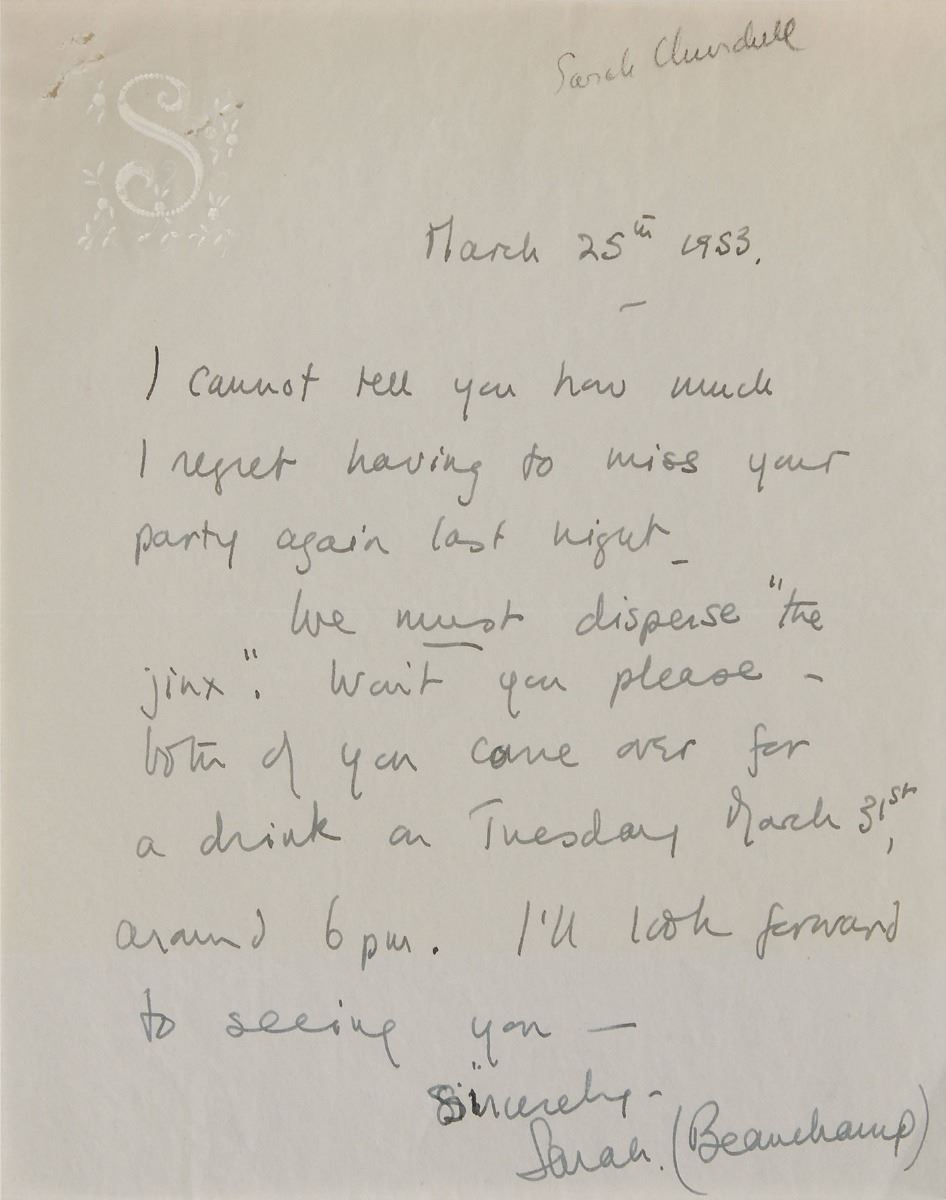 S
Sarah Churchill
March 25th 1953.
I cannot tell you how much
I regret having to miss your
party again last night_
We must disperse "the
jinx". Won't you please -
both of you come over for
a drink on Tuesday March 31st,
around 6 pm. I'll look forward
to seeing you —
Sincerely-
Sarah. (Beauchamp)